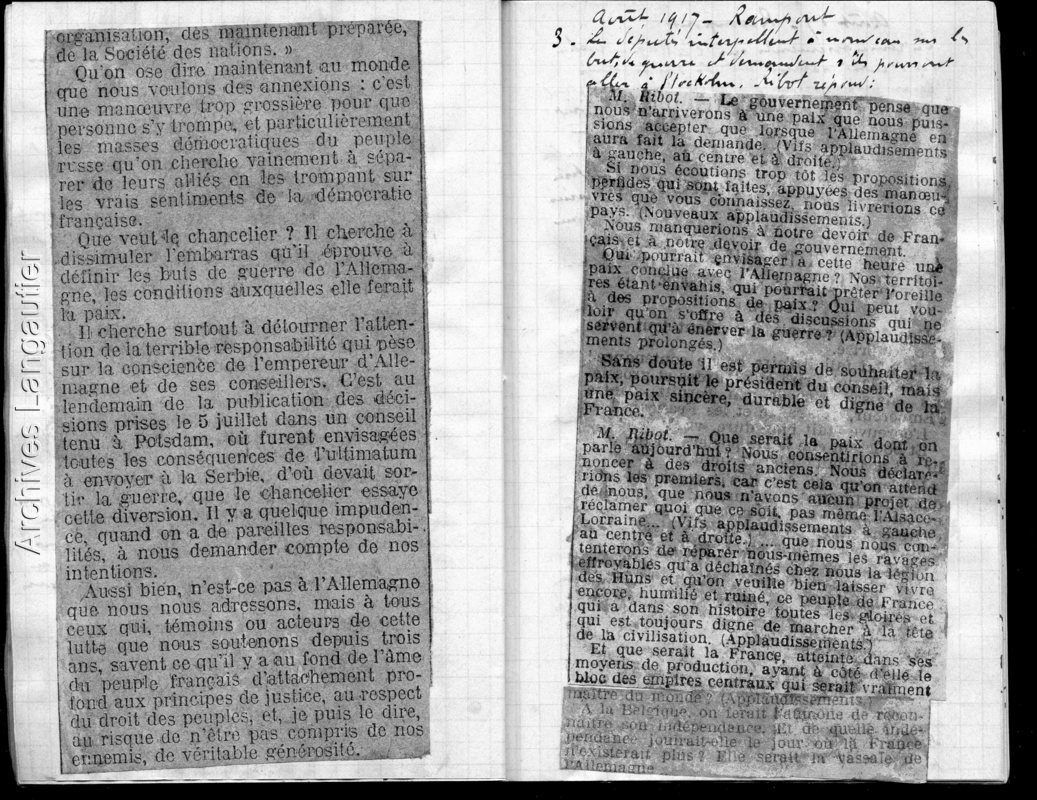 organisation, dès maintenant préparée,
de la Société des nations. »
Qu'on ose dire maintenant au monde
que nous voulons des annexions : c'est
une manœuvre trop grossière pour que
personne s'y trompe, et particulièrement
les masses démocratiques du peuple
russe qu'on cherche vainement à sépa-
rer de leurs alliés en les trompant sur
les vrais sentiments de la démocratie
française.
Que veut le chancelier ? Il cherche à
dissimuler l'embarras qu'il éprouve à
définir les buts de guerre de l'Allema-
gne, les conditions auxquelles elle ferait
la paix.
Il cherche surtout à détourner l'atten-
tion de la terrible responsabilité qui pèse
sur la conscience de l'empereur d'Alle-
magne et de ses conseillers. C'est au
lendemain de la publication des déci-
sions prises le 5 juillet dans un conseil
tenu à Potsdam, où furent envisagées
toutes les conséquences de l'ultimatum
à envoyer à la Serbie, d'où devait sor-
tir la guerre, que le chancelier essaye
cette diversion. Il y a quelque impuden-
ce, quand on a de pareilles responsabi-
lités, à nous demander compte de nos
intentions.
Aussi bien, n'est-ce pas à l'Allemagne
que nous nous adressons, mais à tous
ceux qui, témoins ou acteurs de cette
lutte que nous soutenons depuis trois
ans, savent ce qu'il y a au fond de l'âme
du peuple français d'attachement pro-
fond aux principes de justice, au respect
du droit des peuples, et, je puis le dire,
au risque de n'être pas compris de nos
ennemis, de véritable générosité.
Archives Langautier
Août 1917 - Rampont
3. Les députés interpellent à nouveau sur les
buts de guerre et demandent s'ils pourront
aller à Stockolm. Ribot répond :
M. Ribot. — Le gouvernement pense que
nous n'arriverons à une paix que nous puis-
sions accepter que lorsque l'Allemagne en
aura fait la demande. (Vifs applaudissements
à gauche, au centre et à droite.)
Si nous écoutions trop tôt les propositions
perfides qui sont faites, appuyées des manœu-
vres que vous connaissez, nous livrerions ce
pays. (Nouveaux applaudissements.)
Nous manquerions à notre devoir de Fran-
çais et à notre devoir de gouvernement.
Qui pourrait envisager à cette heure une
paix conclue avec l'Allemagne ? Nos territoi-
res étant envahis, qui pourrait prêter l'oreille
à des propositions de paix ? Qui peut vou-
loir qu'on s'offre à des discussions qui ne
servent qu'à énerver la guerre ? (Applaudisse-
ments prolongés.)
Sans doute il est permis de souhaiter la
paix, poursuit le président du conseil, mais
une paix sincère, durable et digne de la
France.
M. Ribot. — Que serait la paix dont on
parle aujourd'hui ? Nous consentirions à re-
noncer à des droits anciens. Nous déclare-
rions les premiers, car c'est cela qu'on attend
de nous, que nous n'avons aucun projet de
réclamer quoi que ce soit, pas même l'Alsace-
Lorraine... (Vifs applaudissements à gauche,
au centre et à droite.) ... que nous nous con-
tenterons de réparer nous-mêmes les ravages
effroyables qu'a déchaînés chez nous la légion
des Huns et qu'on veuille bien laisser vivre
encore, humilié et ruiné, ce peuple de France
qui a dans son histoire toutes les gloires et
qui est toujours digne de marcher à la tête
de la civilisation. (Applaudissements.)
Et que serait la France, atteinte dans ses
moyens de production, ayant à côté d'elle le
bloc des empires centraux qui serait vraiment
maître du monde ? (Applaudissements.)
A la Belgique, on ferait l'aumône de recon-
naître son indépendance. Et de quelle indé-
pendance jouirait-elle le jour où la France
n'existerait plus ? Elle serait la vassale de
l'Allemagne